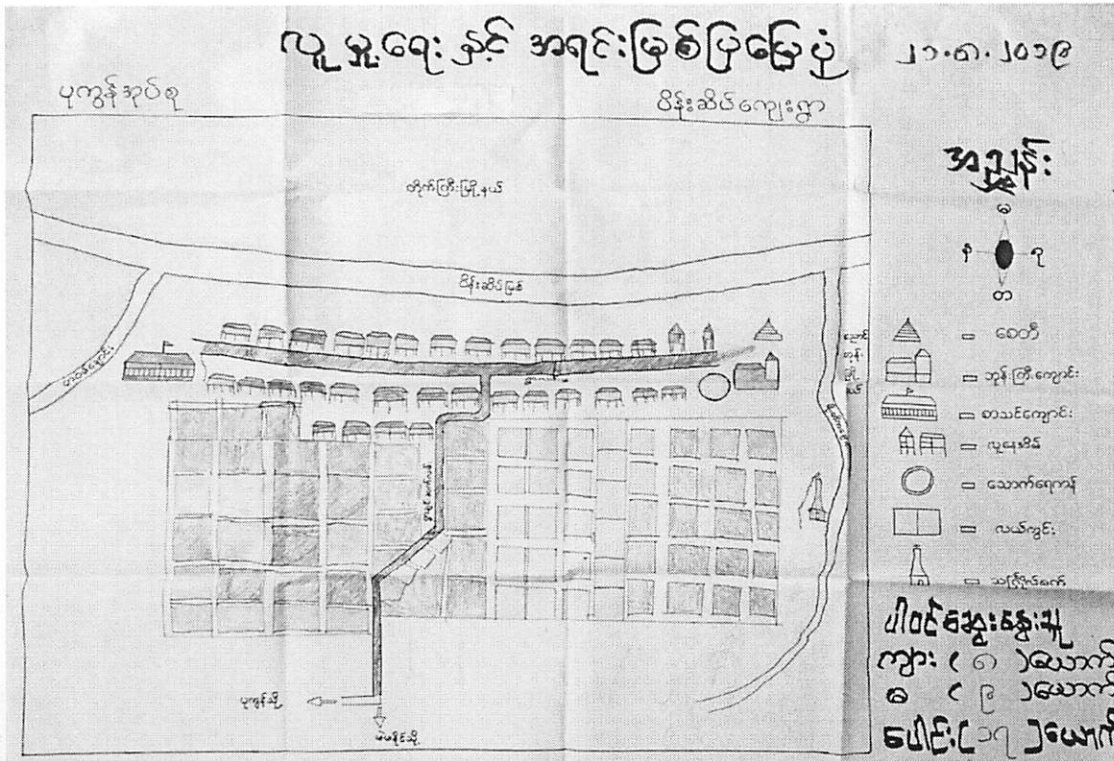 လူမှုရေးနှင့် အရင်းမြစ်ပြမြေပုံ ၂၁.၈.၂၀၁၉
ပုကွန်အုပ်စု
ပိန်းဆိပ်ကျေးရွာ
တိုက်ကြီးမြို့နယ်
ပိန်းဆိပ်မြစ်
အညွှန်း
မ
န ရ
တ
စေတီ
ဘုန်းကြီးကျောင်း
စာသင်ကျောင်း
လူနေအိမ်
သောက်ရေကန်
လယ်ကွင်း
ပုကွန်သို့
ပါဝင်ဆွေးနွေးသူ
ကျား (၈) ယောက်
မ (၉) ယောက်
ပေါင်း [၁၇] ယောက်